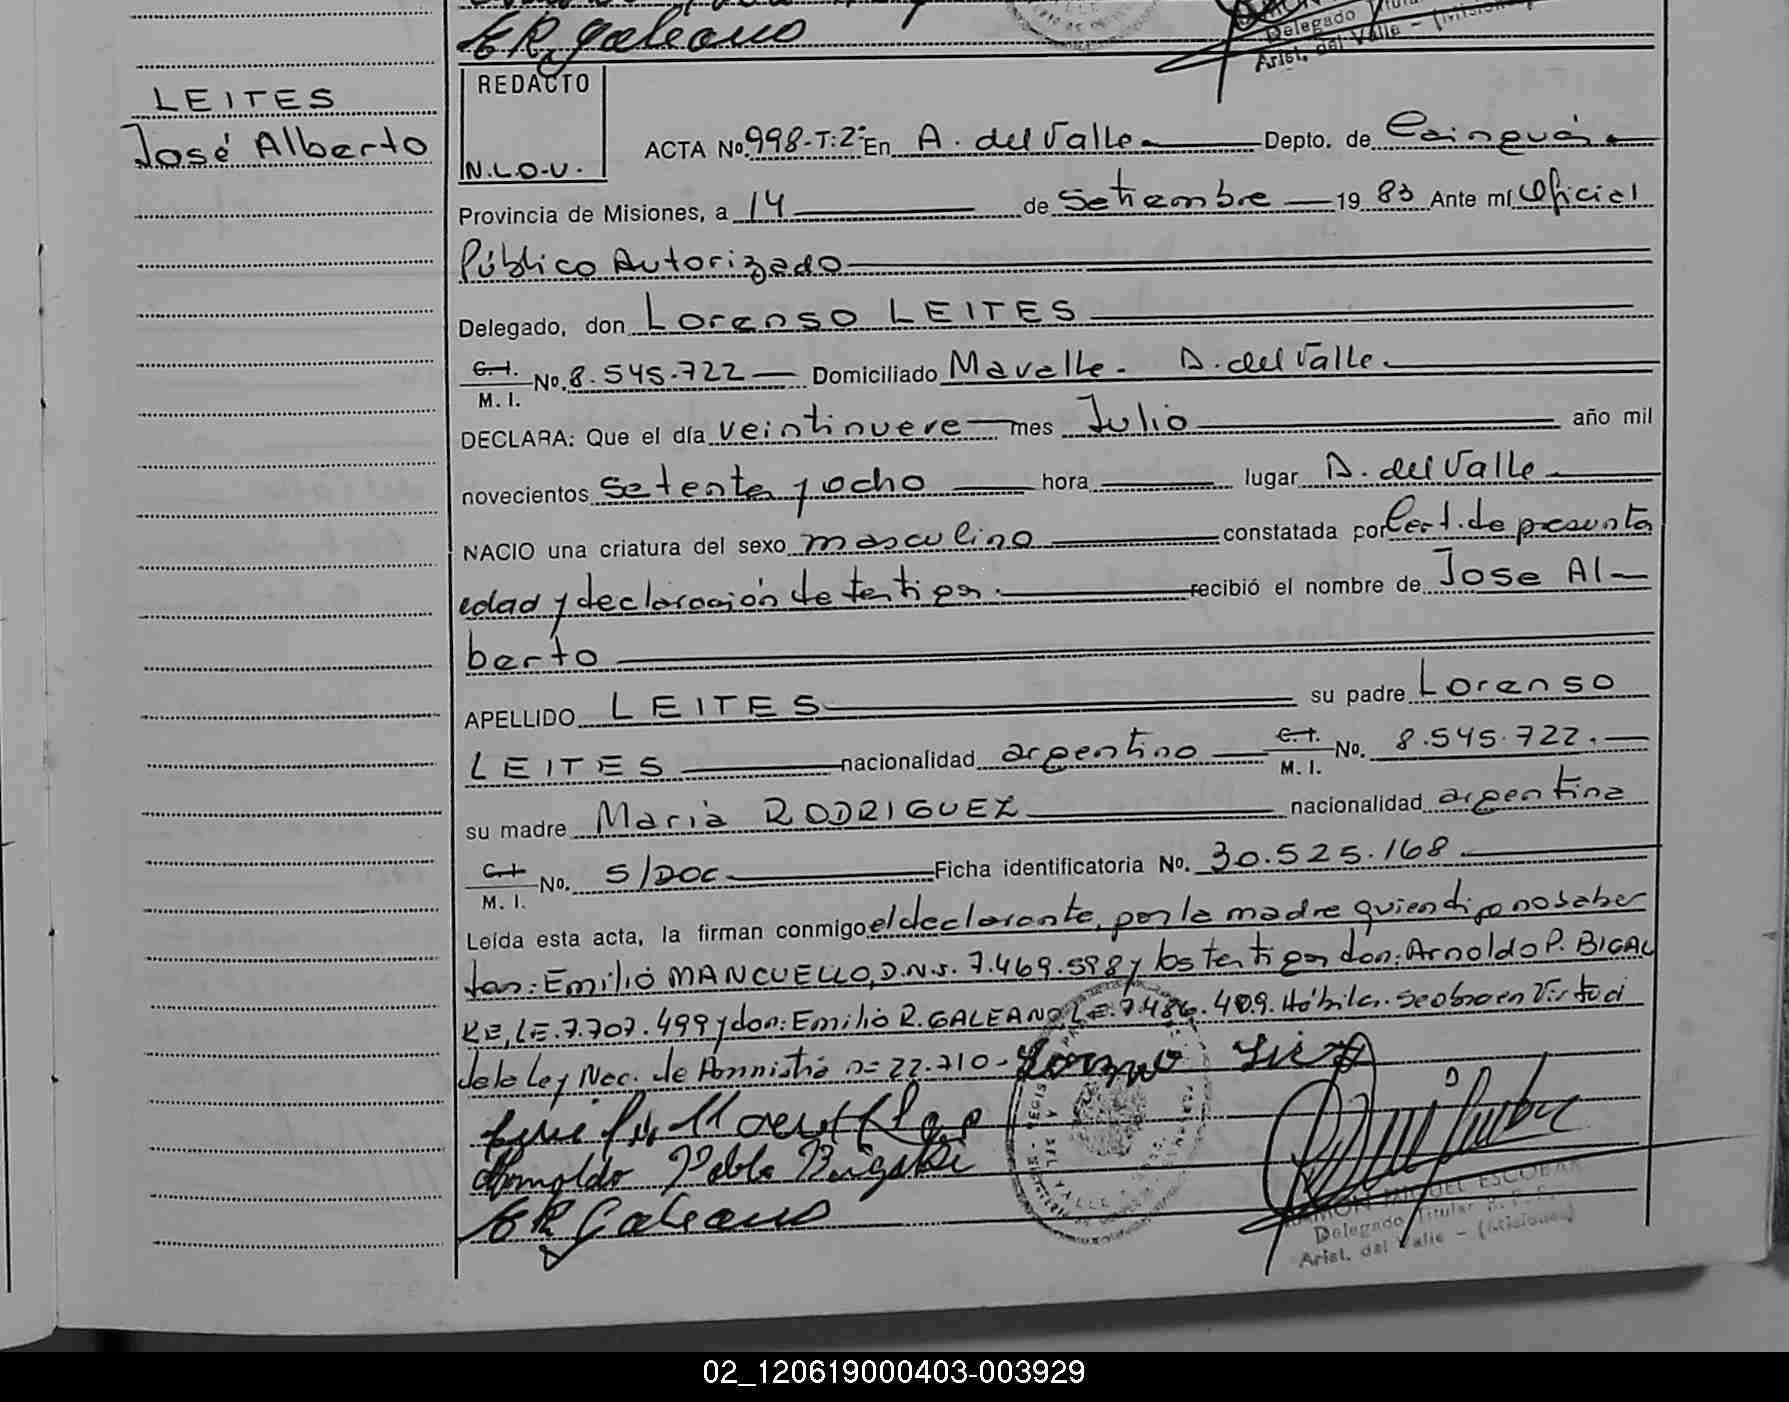 E R Galeano
Delegado Titular
Arist. del Valle - (Misiones)
LEITES
José Alberto
REDACTO
N.L.O.V.
ACTA No. 998-T:2º En A. del Valle Depto. de Cainguás
Provincia de Misiones, a 14 de Setiembre 19 83 Ante mí Oficial
Público Autorizado
Delegado, don Lorenso LEITES
C.I. M.I. No. 8.545.722 Domiciliado Mavalle - A. del Valle.
DECLARA: Que el día veintinueve mes Julio año mil
novecientos setenta y ocho hora lugar A. del Valle
NACIO una criatura del sexo masculino constatada por Cert. de presunta
edad y declaración de testigos. recibió el nombre de Jose Al-
berto
APELLIDO LEITES su padre Lorenso
LEITES nacionalidad argentino C.I. M.I. No. 8.545.722.
su madre Maria RODRIGUEZ nacionalidad argentina
C.I. M.I. No. S/DOC Ficha identificatoria No. 30.525.168
Leída esta acta, la firman conmigo el declarante, por la madre quien dijo no saber
don: Emilio MANCUELLO, D.N.I. 7.469.598 y los testigos don: Arnoldo P. BIGAL
KE, L.E. 7.707.499 y don: Emilio R. GALEANO L.E. 7.486.409. Hábiles. Se obro en Virtud
de la Ley Nac. de Amnistia nº 22.710-
Arnoldo Pablo Bigalke
E R Galeano
RAMON MIGUEL ESCOBAR
Delegado Titular R. P. P.
Arist. del Valle - (Misiones)
02_120619000403-003929